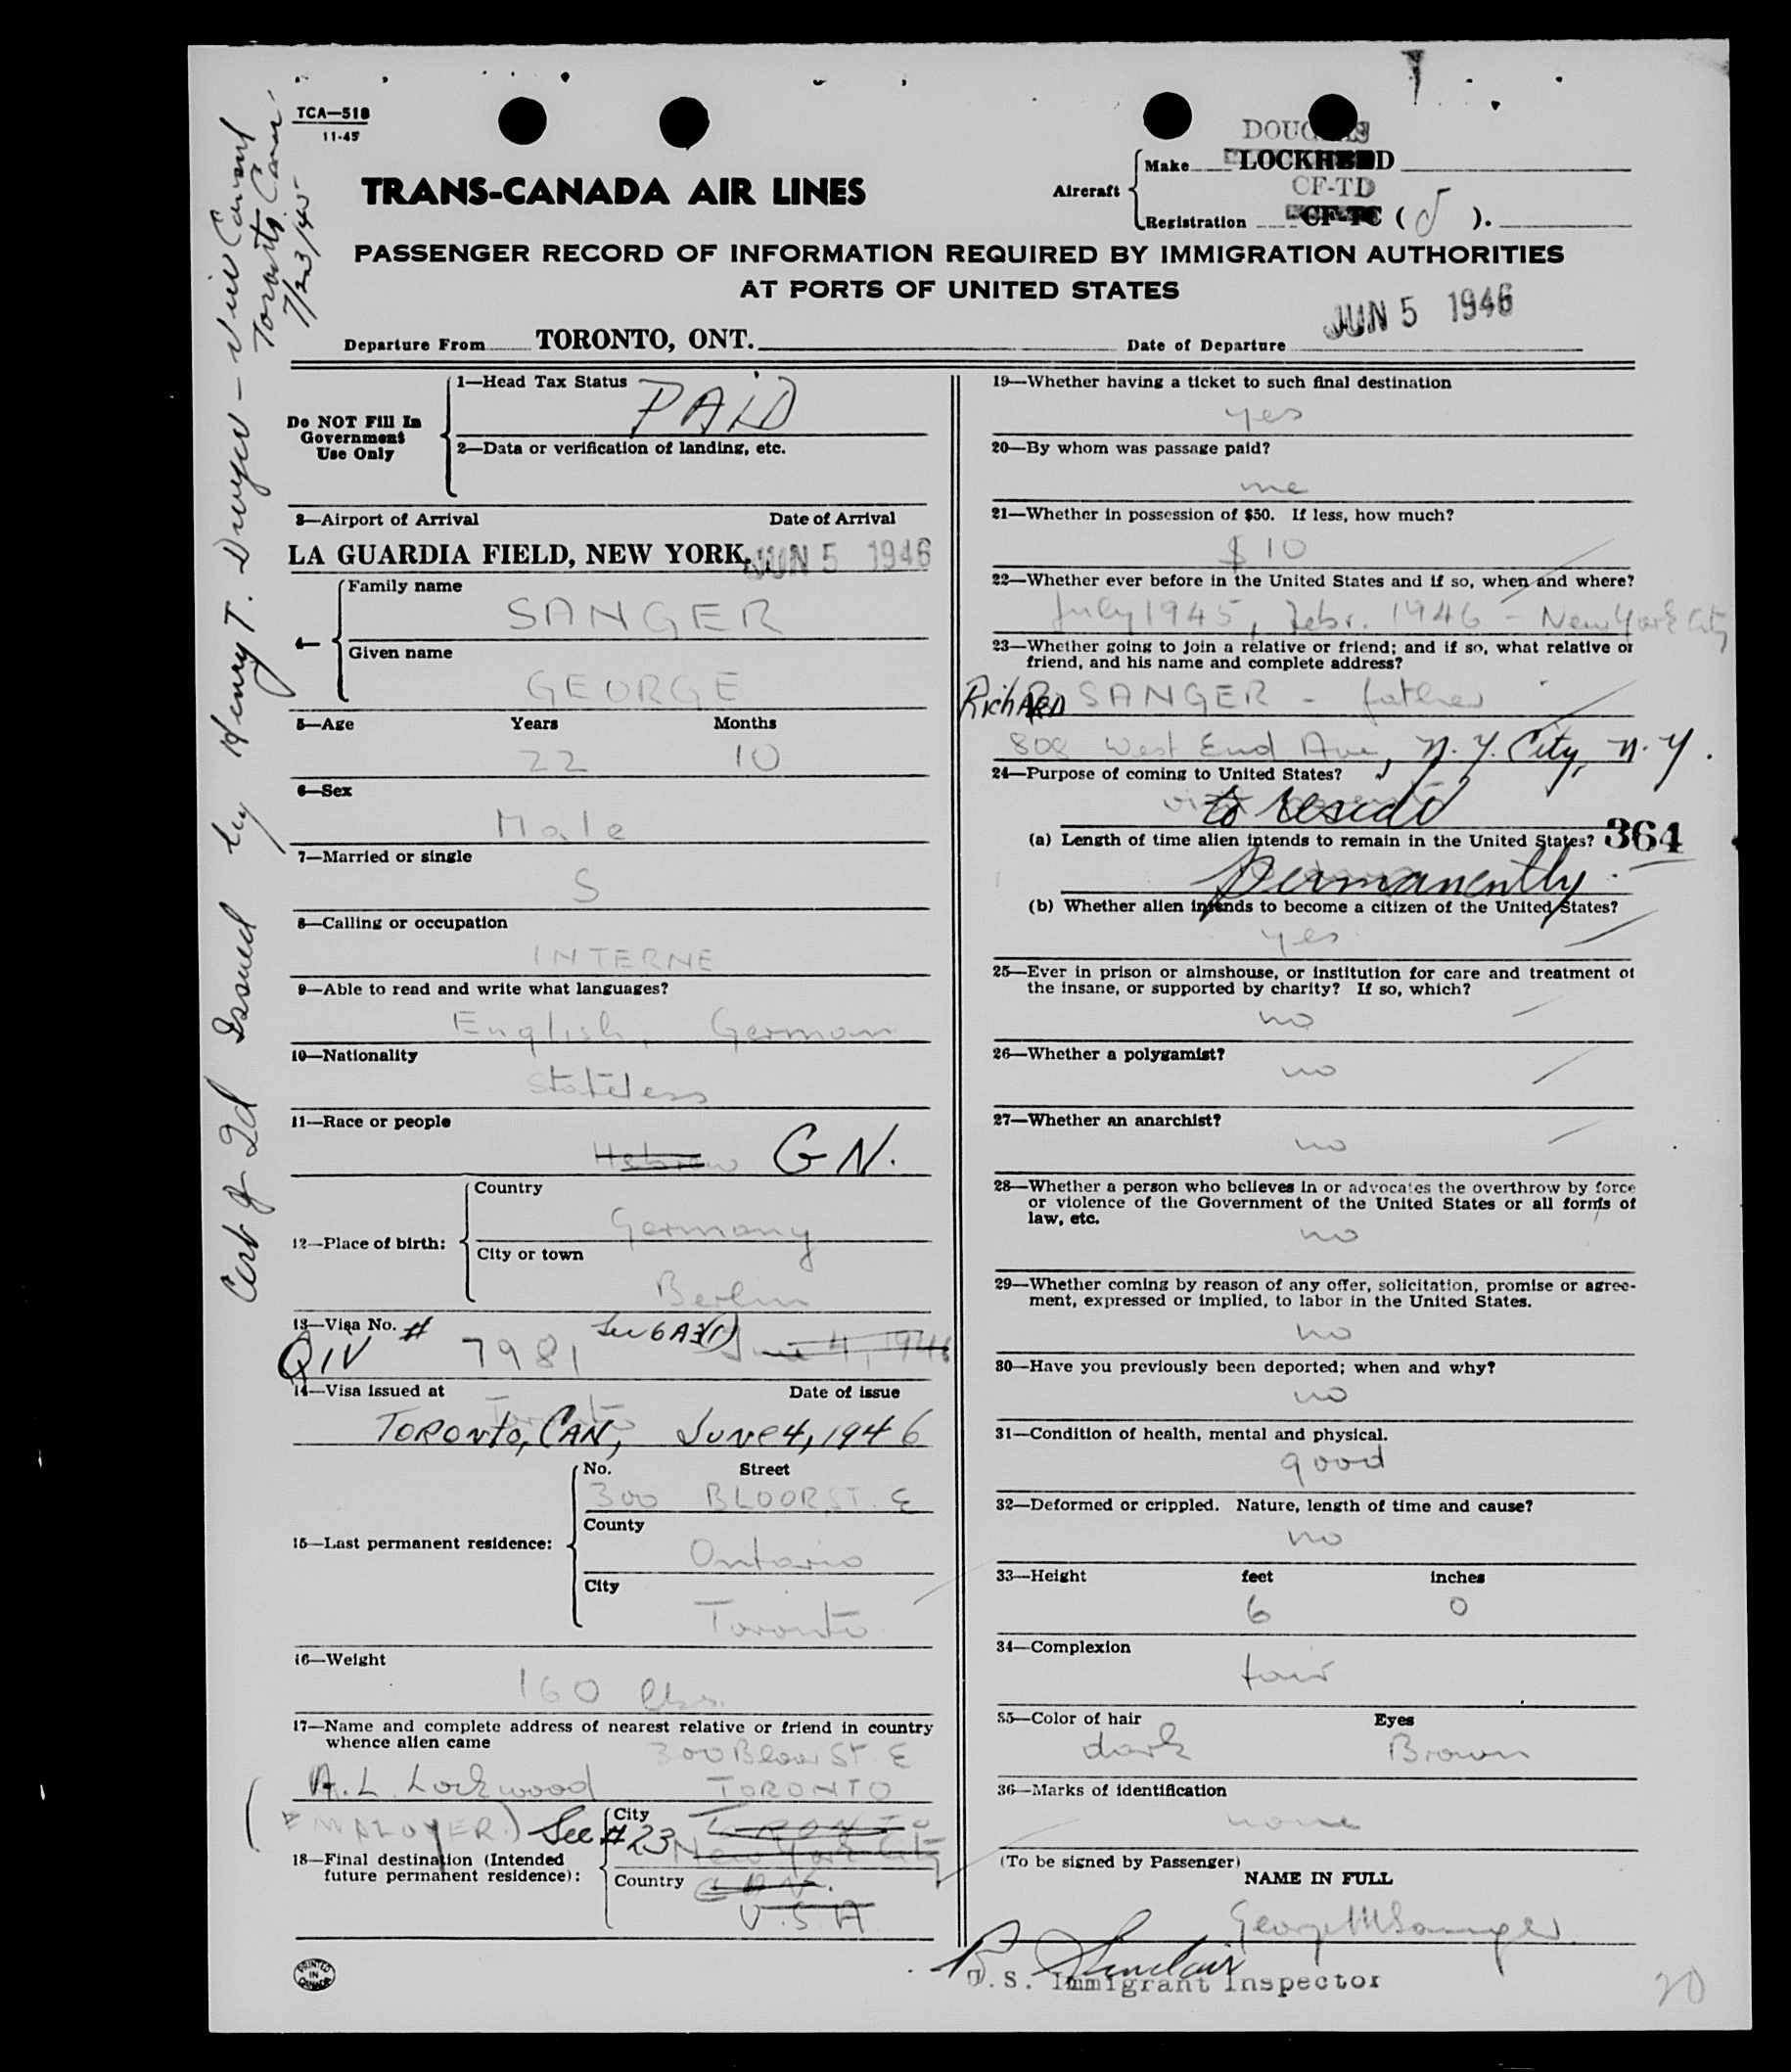 TCA—518
11-45
DOUGLAS
Aircraft
Make LOCKHEED
CF-TD
Registration CF-TC ( J ).
TRANS-CANADA AIR LINES
PASSENGER RECORD OF INFORMATION REQUIRED BY IMMIGRATION AUTHORITIES
AT PORTS OF UNITED STATES
Departure From TORONTO, ONT.
Date of Departure JUN 5 1946
Cert of Id Issued by Henry T. Dwyer – Vice Consul
Toronto, Can.
7/23/45
Do NOT Fill In
Government
Use Only
1—Head Tax Status PAID
2—Data or verification of landing, etc.
3—Airport of Arrival Date of Arrival
LA GUARDIA FIELD, NEW YORK, JUN 5 1946
4—
Family name
SANGER
Given name
GEORGE
5—Age Years Months
22 10
6—Sex
Male
7—Married or single
S
8—Calling or occupation
INTERNE
9—Able to read and write what languages?
English, German
10—Nationality
Stateless
11—Race or people
Hebrew GN.
12—Place of birth:
Country
Germany
City or town
Berlin
13—Visa No. #
QIV 7981 Sec 6A3(1) June 4, 1946
14—Visa issued at Date of issue
Toronto
TORONTO, CAN, JUNE 4, 1946
15—Last permanent residence:
No. Street
300 BLOOR ST. E
County
Ontario
City
Toronto
16—Weight
160 lbs.
17—Name and complete address of nearest relative or friend in country
whence alien came
300 Bloor St E
A. L. Lockwood TORONTO
(EMPLOYER) See #23
18—Final destination (Intended
future permanent residence):
City TORONTO
New York City
Country CAN.
U.S.A
PRINTED
IN
CANADA
19—Whether having a ticket to such final destination
yes
20—By whom was passage paid?
me
21—Whether in possession of $50. If less, how much?
$10
22—Whether ever before in the United States and if so, when and where?
July 1945, Febr. 1946 – New York City
23—Whether going to join a relative or friend; and if so, what relative or
friend, and his name and complete address?
RichARD SANGER – father
808 West End Ave, N.Y. City, N.Y.
24—Purpose of coming to United States?
to reside
(a) Length of time alien intends to remain in the United States? 364
Permanently.
(b) Whether alien intends to become a citizen of the United States?
yes
25—Ever in prison or almshouse, or institution for care and treatment of
the insane, or supported by charity? If so, which?
no
26—Whether a polygamist?
no
27—Whether an anarchist?
no
28—Whether a person who believes in or advocates the overthrow by force
or violence of the Government of the United States or all forms of
law, etc.
no
29—Whether coming by reason of any offer, solicitation, promise or agree-
ment, expressed or implied, to labor in the United States.
no
30—Have you previously been deported; when and why?
no
31—Condition of health, mental and physical.
good
32—Deformed or crippled. Nature, length of time and cause?
no
33—Height feet inches
6 0
34—Complexion
fair
35—Color of hair Eyes
dark Brown
36—Marks of identification
none
(To be signed by Passenger)
NAME IN FULL
George M Sanger
B. Sinclair
U.S. Immigrant Inspector
20